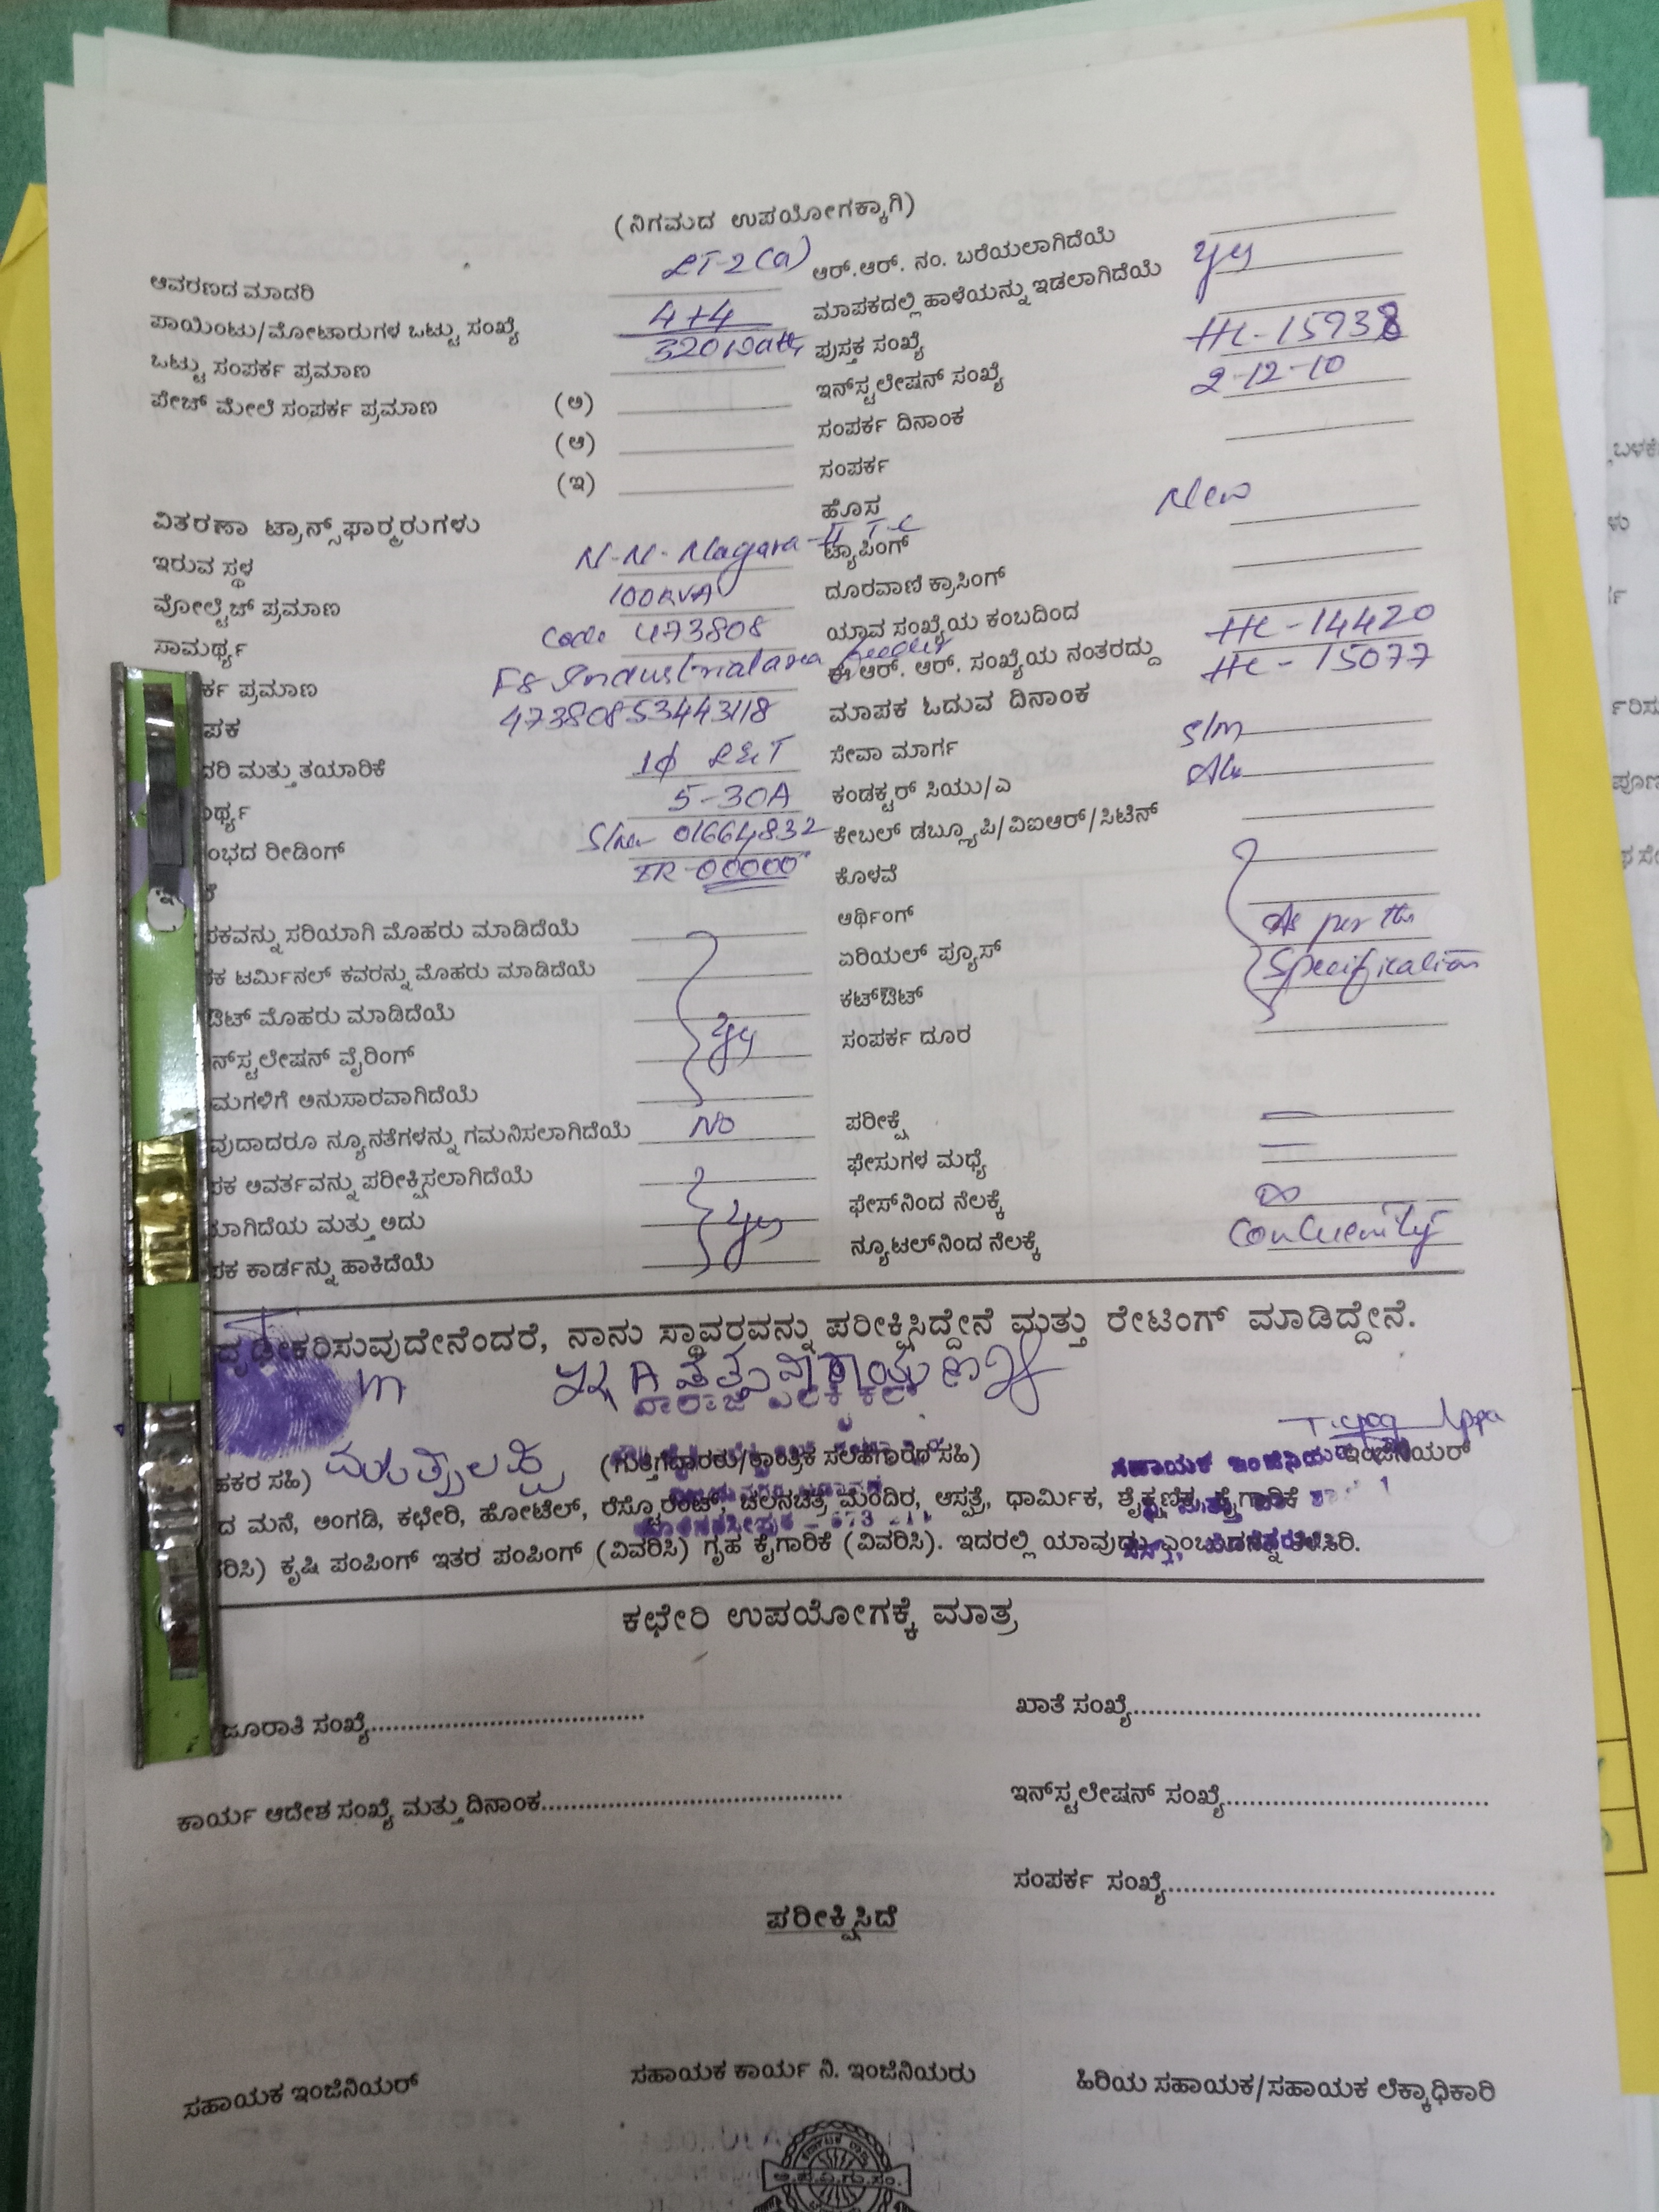 (ನಿಗಮದ ಉಪಯೋಗಕ್ಕಾಗಿ)
ಆವರಣದ ಮಾದರಿ LT-2(a) ಆರ್.ಆರ್. ನಂ. ಬರೆಯಲಾಗಿದೆಯೆ
ಪಾಯಿಂಟು/ಮೋಟಾರುಗಳ ಒಟ್ಟು ಸಂಖ್ಯೆ 4+4 ಮಾಪಕದಲ್ಲಿ ಹಾಳೆಯನ್ನು ಇಡಲಾಗಿದೆಯೆ yes
ಒಟ್ಟು ಸಂಪರ್ಕ ಪ್ರಮಾಣ 320 Watts ಪುಸ್ತಕ ಸಂಖ್ಯೆ
ಪೇಚ್ ಮೇಲೆ ಸಂಪರ್ಕ ಪ್ರಮಾಣ (ಅ) ಇನ್‌ಸ್ಟಲೇಷನ್ ಸಂಖ್ಯೆ HL-15938
(ಆ) ಸಂಪರ್ಕ ದಿನಾಂಕ 2-12-10
(ಇ) ಸಂಪರ್ಕ
ವಿತರಣಾ ಟ್ರಾನ್ಸ್‌ಫಾರ್ಮರುಗಳು ಹೊಸ New
ಇರುವ ಸ್ಥಳ N-N-Nagara-II T-C ಟ್ಯಾಪಿಂಗ್
ವೋಲ್ಟೆಜ್ ಪ್ರಮಾಣ 100KVA ದೂರವಾಣಿ ಕ್ರಾಸಿಂಗ್
ಸಾಮರ್ಥ್ಯ Code 473808 ಯಾವ ಸಂಖ್ಯೆಯ ಕಂಬದಿಂದ
ರ್ಕ ಪ್ರಮಾಣ F8 Industrial area feeder ಈ ಆರ್. ಆರ್. ಸಂಖ್ಯೆಯ ನಂತರದ್ದು HL-14420
ಪಕ 47380853443118 ಮಾಪಕ ಓದುವ ದಿನಾಂಕ HL-15077
ದರಿ ಮತ್ತು ತಯಾರಿಕೆ 1φ L&T ಸೇವಾ ಮಾರ್ಗ S/m
ರ್ಥ್ಯ 5-30A ಕಂಡಕ್ಟರ್ ಸಿಯು/ಎ
ಂಭದ ರೀಡಿಂಗ್ 01664832 ಕೇಬಲ್ ಡಬ್ಲ್ಯೂಪಿ/ವಿಐಆರ್/ಸಿಟಿನ್
IR-00000 ಕೊಳವೆ
ಪಕವನ್ನು ಸರಿಯಾಗಿ ಮೊಹರು ಮಾಡಿದೆಯೆ ಆರ್ಥಿಂಗ್ As per the
ಕ ಟರ್ಮಿನಲ್ ಕವರನ್ನು ಮೊಹರು ಮಾಡಿದೆಯೆ ಏರಿಯಲ್ ಪ್ಯೂಸ್ Specification
ಔಟ್ ಮೊಹರು ಮಾಡಿದೆಯೆ ಕಟ್‌ಔಟ್
ನ್‌ಸ್ಟಲೇಷನ್ ವೈರಿಂಗ್ yes ಸಂಪರ್ಕ ದೂರ
ಮಗಳಿಗೆ ಅನುಸಾರವಾಗಿದೆಯೆ
ವುದಾದರೂ ನ್ಯೂನತೆಗಳನ್ನು ಗಮನಿಸಲಾಗಿದೆಯೆ NO ಪರೀಕ್ಷೆ
ಪಕ ಆವರ್ತವನ್ನು ಪರೀಕ್ಷಿಸಲಾಗಿದೆಯೆ ಫೇಸುಗಳ ಮಧ್ಯೆ
ಲಾಗಿದೆಯ ಮತ್ತು ಅದು yes ಫೇಸ್‌ನಿಂದ ನೆಲಕ್ಕೆ ∞
ಪಕ ಕಾರ್ಡನ್ನು ಹಾಕಿದೆಯೆ ನ್ಯೂಟಲ್‌ನಿಂದ ನೆಲಕ್ಕೆ
ದೃಢೀಕರಿಸುವುದೇನೆಂದರೆ, ನಾನು ಸ್ಥಾವರವನ್ನು ಪರೀಕ್ಷಿಸಿದ್ದೇನೆ ಮತ್ತು ರೇಟಿಂಗ್ ಮಾಡಿದ್ದೇನೆ.
ಹಕರ ಸಹಿ) (ಗುತ್ತಿಗೆದಾರರು/ತಾಂತ್ರಿಕ ಸಲಹೆಗಾರರ ಸಹಿ) ಸಹಾಯಕ ಇಂಜಿನಿಯರ್
ದ ಮನೆ, ಅಂಗಡಿ, ಕಛೇರಿ, ಹೋಟೆಲ್, ರೆಸ್ಟೊರೆಂಟ್, ಚಲನಚಿತ್ರ ಮಂದಿರ, ಆಸ್ಪತ್ರೆ, ಧಾರ್ಮಿಕ, ಶೈಕ್ಷಣಿಕ, ಕೈಗಾರಿಕೆ
ರಿಸಿ) ಕೃಷಿ ಪಂಪಿಂಗ್ ಇತರ ಪಂಪಿಂಗ್ (ವಿವರಿಸಿ) ಗೃಹ ಕೈಗಾರಿಕೆ (ವಿವರಿಸಿ). ಇದರಲ್ಲಿ ಯಾವುದು ಎಂಬುದನ್ನು ತಿಳಿಸಿರಿ.
ಕಛೇರಿ ಉಪಯೋಗಕ್ಕೆ ಮಾತ್ರ
ಜೂರಾತಿ ಸಂಖ್ಯೆ ಖಾತೆ ಸಂಖ್ಯೆ
ಕಾರ್ಯ ಆದೇಶ ಸಂಖ್ಯೆ ಮತ್ತು ದಿನಾಂಕ ಇನ್‌ಸ್ಟಲೇಷನ್ ಸಂಖ್ಯೆ
ಸಂಪರ್ಕ ಸಂಖ್ಯೆ
ಪರೀಕ್ಷಿಸಿದೆ
ಸಹಾಯಕ ಇಂಜಿನಿಯರ್ ಸಹಾಯಕ ಕಾರ್ಯ ನಿ. ಇಂಜಿನಿಯರು ಹಿರಿಯ ಸಹಾಯಕ/ಸಹಾಯಕ ಲೆಕ್ಕಾಧಿಕಾರಿ